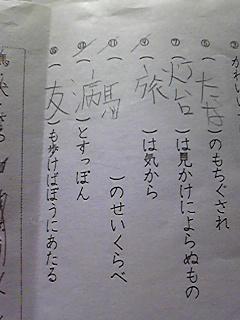 かわいい
⑤（たな）のもちぐされ
⑦（灯台）は見かけによらぬもの
⑨（旅）は気から
⑪（馬）のせいくらべ
⑬（病）とすっぽん
⑮（友）も歩けばぼうにあたる